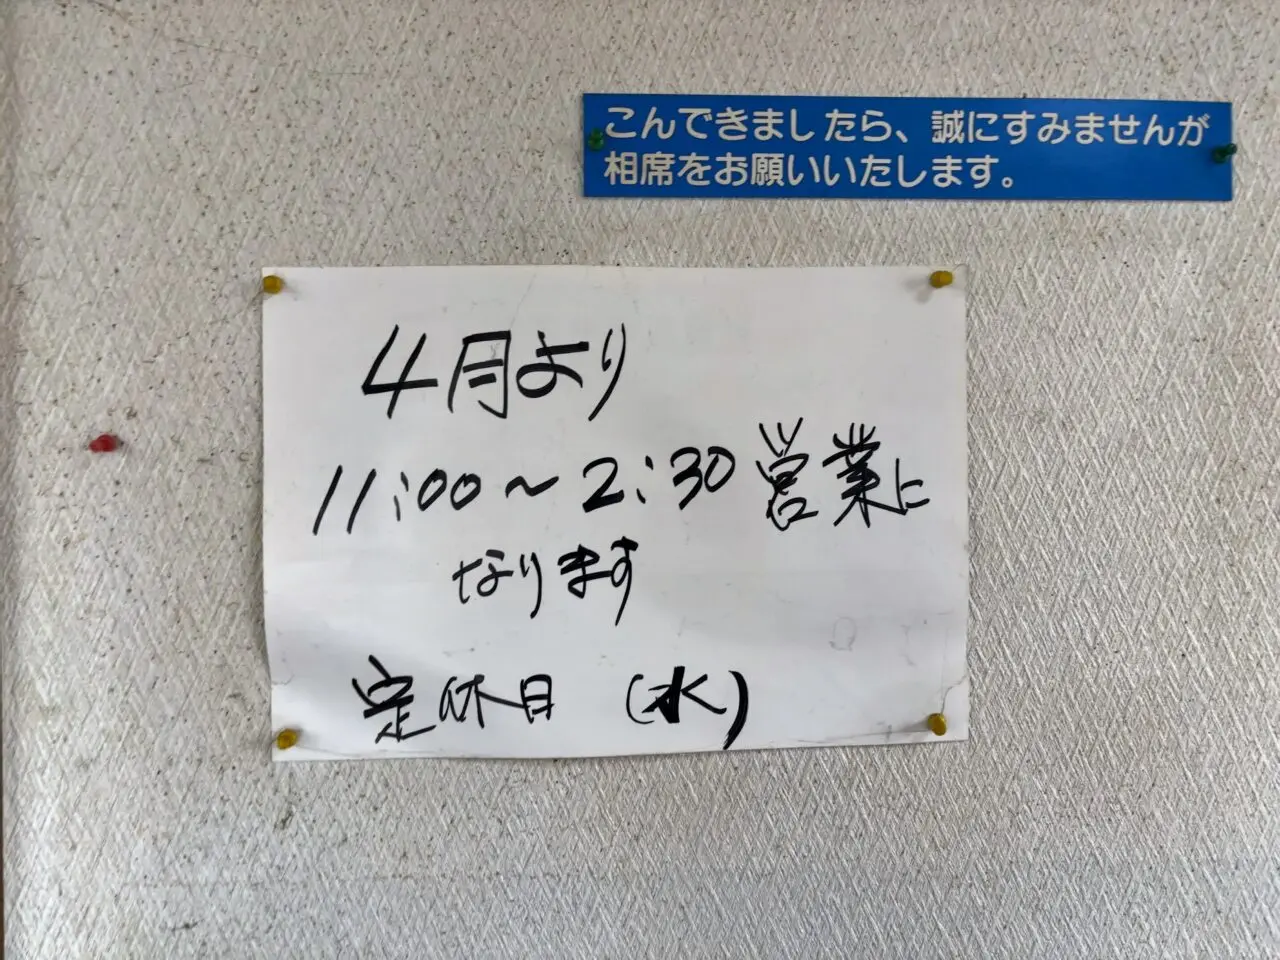 こんできましたら、誠にすみませんが
相席をお願いいたします。
4月より
11:00～2:30営業に
なります
定休日 (水)